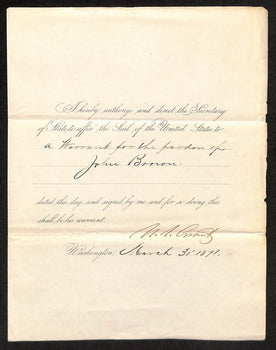 I hereby authorize and direct the Secretary
of State to affix the Seal of the United States to
a Warrant for the pardon of
John Brown.
dated this day, and signed by me; and for so doing this
shall be his warrant.
U. S. Grant
Washington, March 31 1871.